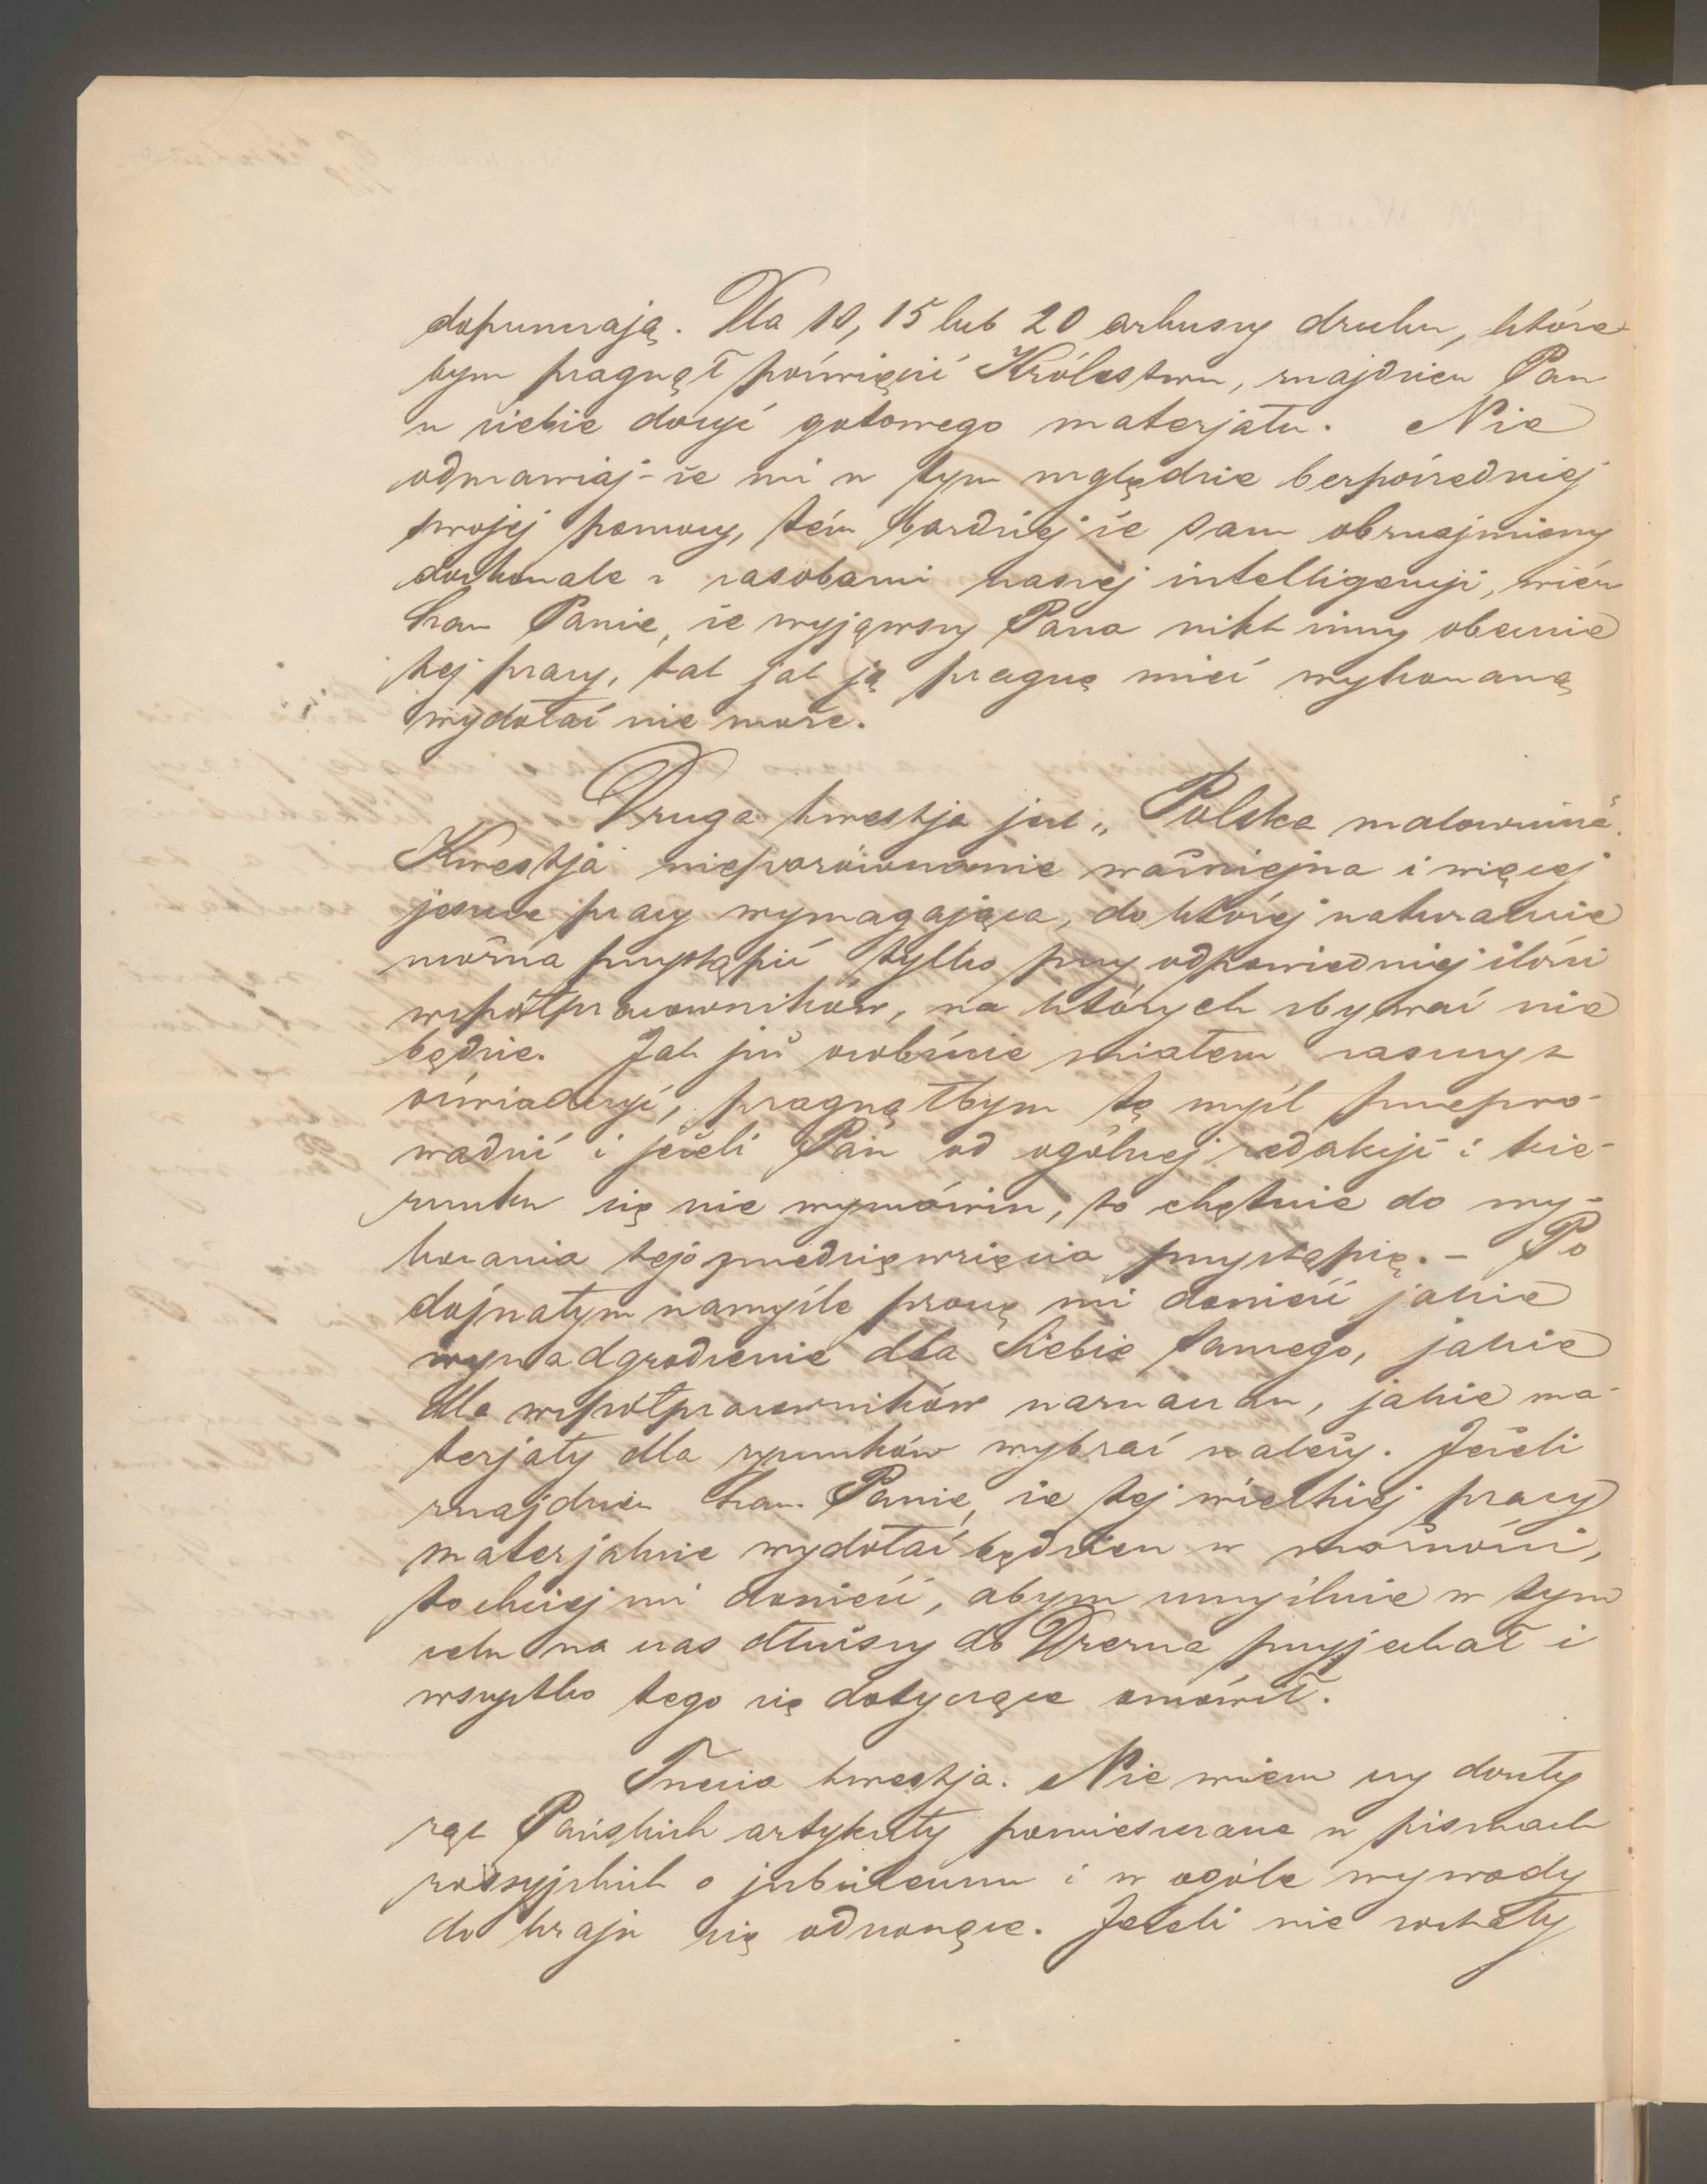 dopuszczają. Dla 10, 15 lub 20 arkuszy druku, które
bym pragnął poświęcić Królestwu, znajdziesz Pan
u siebie dosyć gotowego materjału. Nie
odmawiaj-że mi w tym względzie bezpośredniej
swojej pomocy, tém bardziej że sam obznajmiony
doskonale z zasobami naszej intelligencji, wiész
Szan Panie, że wyjąwszy Pana nikt inny obecnie
tej pracy, tak jak ją pragnę mieć wykonaną
wydołać nie może.
Druga kwestja jest „Polska malownicza".
Kwestja nieporównanie ważniejsza i więcej
jeszcze pracy wymagająca, do której naturalnie
można przystąpić tylko przy odpowiedniej ilości
współpracowników, na których zbywać nie
będzie. Jak już osobiście miałem zaszczyt
oświadczyć, pragnąłbym tę myśl przepro-
wadzić i jeżeli Pan od ogólnej redakcji i kie-
runku się nie wymówisz, to chętnie do wy-
konania tego przedsięwzięcia przystąpię. – Po
dojrzałym namyśle proszę mi donieść jakie
wynadgrodzenie dla Siebie samego, jakie
dla współpracowników naznaczasz, jakie ma-
terjały dla rysunków wybrać należy. Jeżeli
znajdziesz Szan. Panie, że tej wielkiej pracy
materjalnie wydołać będziesz w możności,
to chciej mi donieść, abym umyślnie w tym
celu na czas dłuższy do Drezna przyjechał i
wszystko tego się dotyczące omówił.
Trzecia kwestja. Nie wiem czy doszły
rąk Pańskich artykuły pomieszczane w pismach
rossyjskich o jubileuszu i w ogóle wywody
do kraju się odnoszące. Jeżeli nie zostały